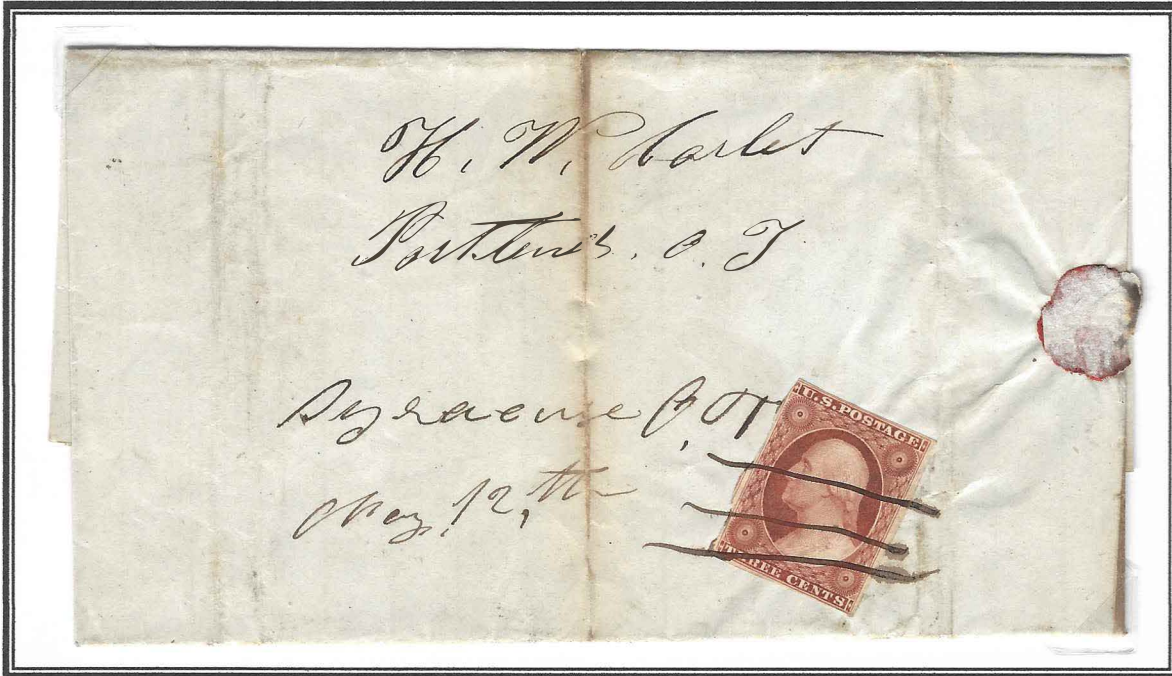 H. W. Corbet
Portland. O. T
Syracuse O, T
May, 12,th
U.S. POSTAGE
THREE CENTS